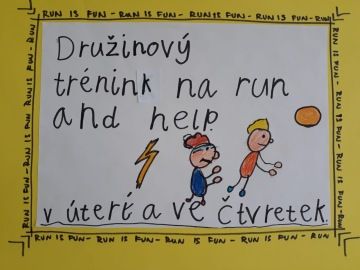 RUN IS FUN - RUN IS FUN - RUN IS FUN - RUN IS FUN - RUN
Družinový
trénink na run
and help
v úterý a ve čtvretek
RUN IS FUN - RUN IS FUN - RUN IS FUN - RUN IS FUN - RUN IS FUN